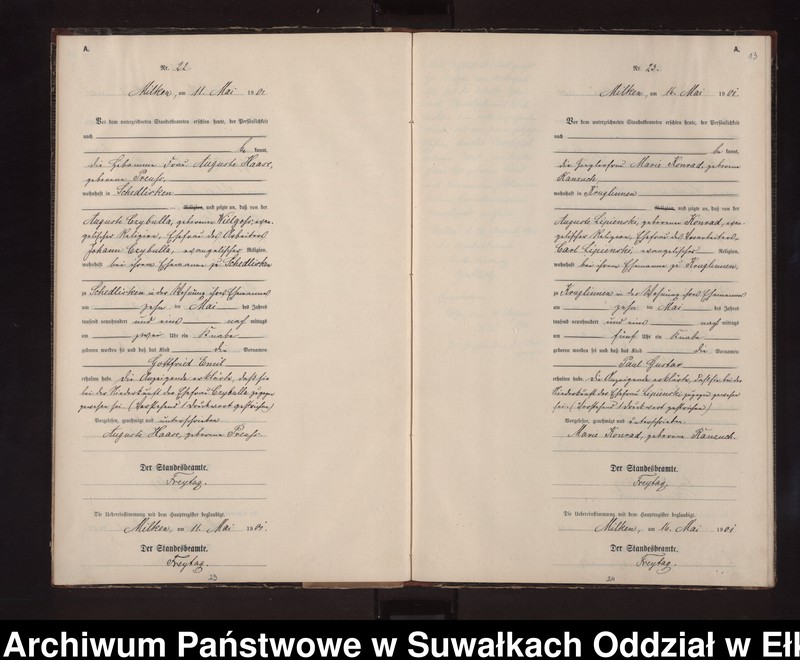 A.
Nr. 22
Milken, am 11. Mai 1901
Vor dem unterzeichneten Standesbeamten erschien heute, der Persönlichkeit
nach
be kannt,
die Hebamme Frau Auguste Haar,
geborene Preuß,
wohnhaft in Schedlisken
Religion, und zeigte an, daß von der
Auguste Czybulla, geborenen Kielgaß, evan-
gelischer Religion, Ehefrau des Arbeiters
Johann Czybulla, evangelischer Religion,
wohnhaft bei ihrem Ehemanne zu Schedlisken
zu Schedlisken in der Wohnung ihres Ehemannes
am zehn ten Mai des Jahres
tausend neunhundert und eins nach mittags
um zwei Uhr ein Knabe
geboren worden sei und daß das Kind die Vornamen
Gottfried Emil
erhalten habe. Die Anzeigende erklärte, daß sie
bei der Niederkunft der Ehefrau Czybulla zugegen
gewesen sei. (Vorstehend 1 Druckwort gestrichen)
Vorgelesen, genehmigt und unterschrieben
Auguste Haar, geborene Preuß.
Der Standesbeamte.
Freytag.
Die Uebereinstimmung mit dem Hauptregister beglaubigt.
Milken, am 11. Mai 1901
Der Standesbeamte.
Freytag.
23
A.
13
Nr. 23.
Milken, am 14. Mai 1901
Vor dem unterzeichneten Standesbeamten erschien heute, der Persönlichkeit
nach
be kannt,
die Marie Konrad, geborene
Kanzuch,
wohnhaft in Kruglinnen
Religion, und zeigte an, daß von der
Auguste Lipienski, geborenen Konrad, evan-
gelischer Religion, Ehefrau des
Carl Lipienski, evangelischer Religion,
wohnhaft bei ihrem Ehemanne zu Kruglinnen,
zu Kruglinnen in der Wohnung ihres Ehemannes
am zehn ten Mai des Jahres
tausend neunhundert und eins nach mittags
um fünf Uhr ein Knabe
geboren worden sei und daß das Kind die Vornamen
Paul Gustav
erhalten habe. Die Anzeigende erklärte, daß sie bei der
Niederkunft der Ehefrau Lipienski zugegen gewesen
sei. (Vorstehend 1 Druckwort gestrichen)
Vorgelesen, genehmigt und unterschrieben
Marie Konrad, geborene Kanzuch.
Der Standesbeamte.
Freytag.
Die Uebereinstimmung mit dem Hauptregister beglaubigt.
Milken, am 14. Mai 1901
Der Standesbeamte.
Freytag.
24
Archiwum Państwowe w Suwałkach Oddział w Ełk